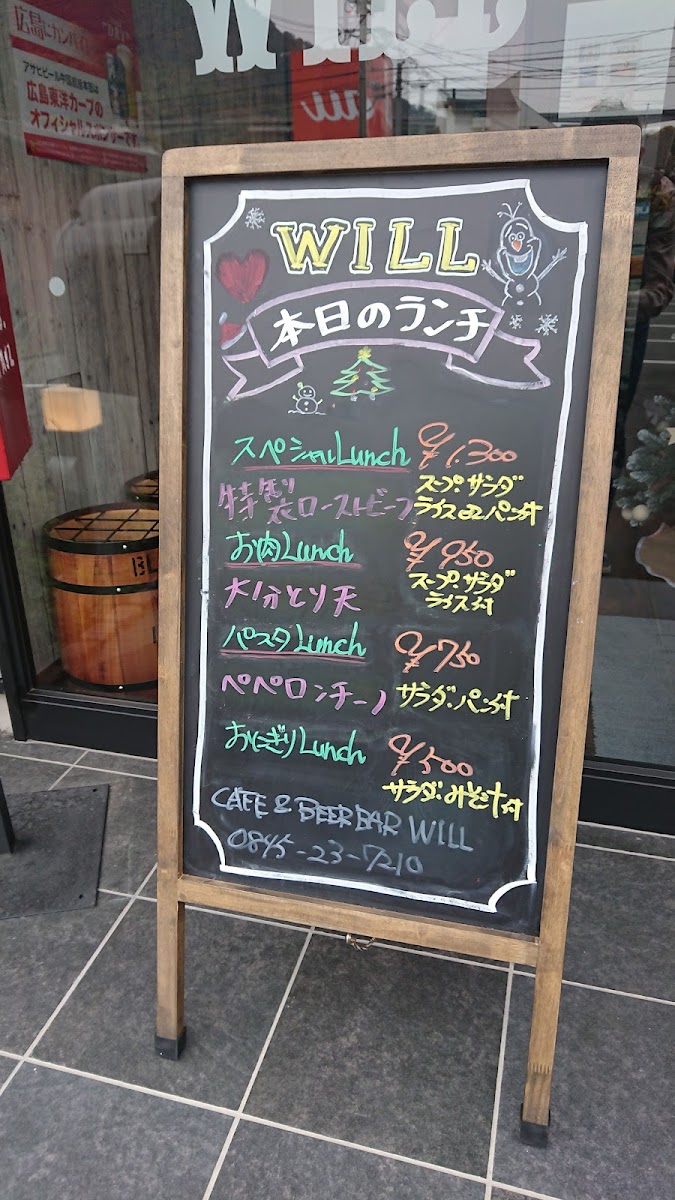 広島にカンパイ
アサヒビール中国統括本部は
広島東洋カープの
オフィシャルスポンサーです
au
WILL
本日のランチ
スペシャルLunch ¥1.300
特製ローストビーフ
スープ・サラダ
ライスorパン付
お肉Lunch ¥950
大分とり天
スープ・サラダ
ライス付
パスタLunch ¥750
ペペロンチーノ サラダ・パン付
おにぎりLunch ¥500
サラダ・みそ汁付
CAFE & BEER BAR WILL
0845-23-7210